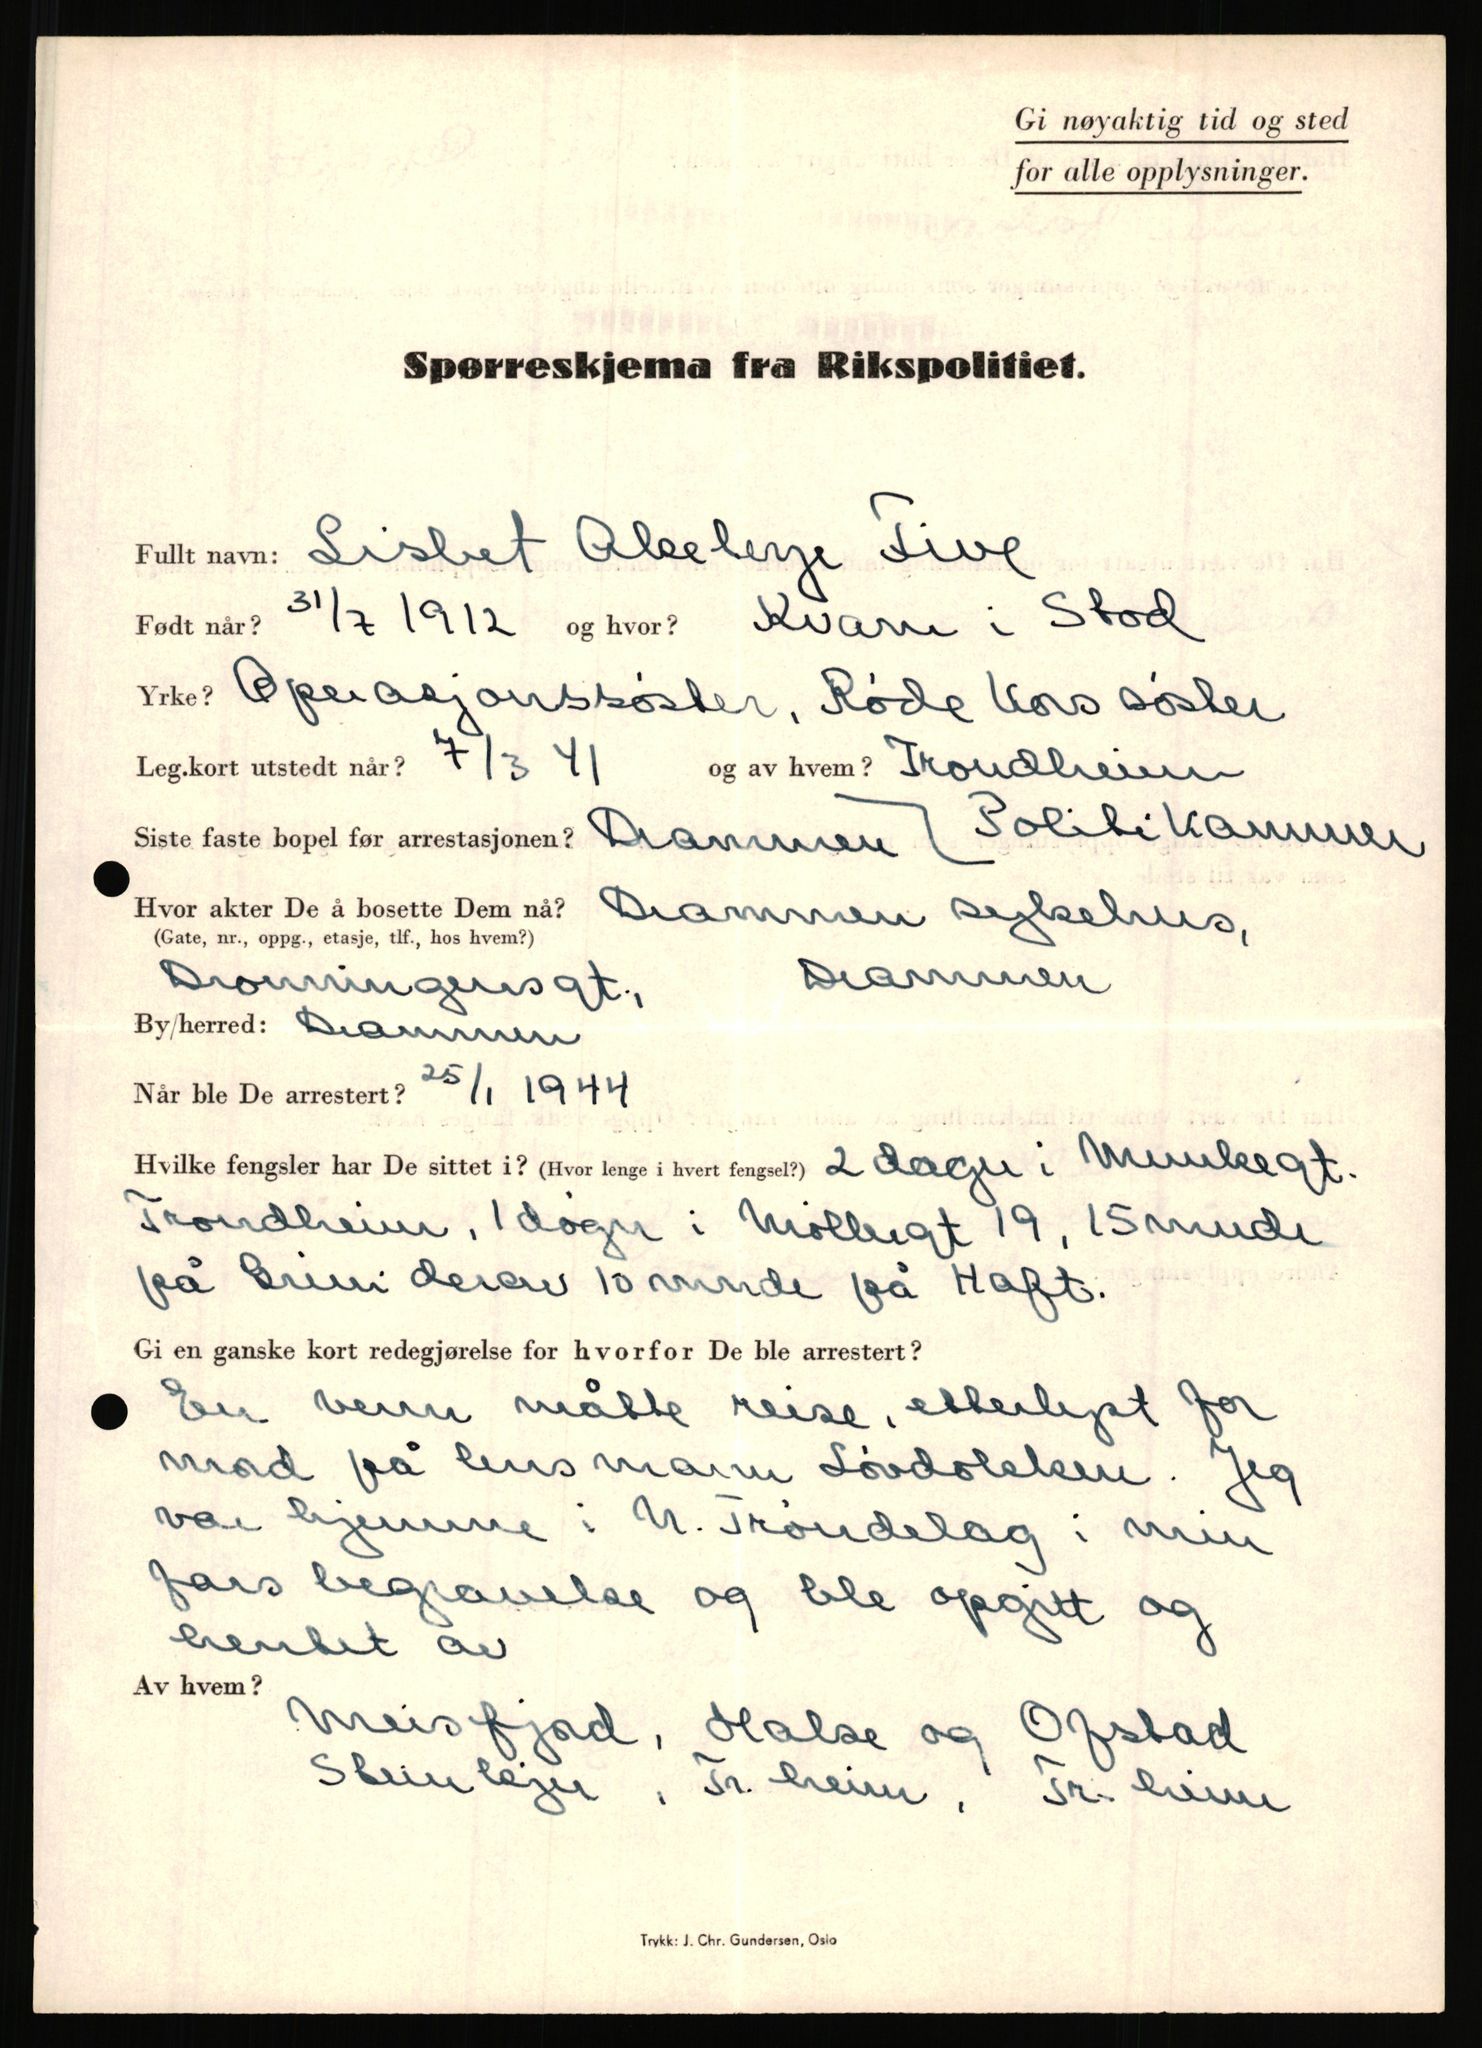 Gi nøyaktig tid og sted
for alle opplysninger.
Spørreskjema fra Rikspolitiet.
Fullt navn: Lisbet Five
Født når? 31/7 1912 og hvor? Kvam i Stod
Yrke? Operasjonssøster, Røde Kors søster
Leg.kort utstedt når? 7/3 41 og av hvem? Trondheim
Siste faste bopel før arrestasjonen? Drammen Politikammer
Hvor akter De å bosette Dem nå? Drammen sykehus,
(Gate, nr., oppg., etasje, tlf., hos hvem?)
Dronningensgt., Drammen
By/herred: Drammen
Når ble De arrestert? 25/1 1944
Hvilke fengsler har De sittet i? (Hvor lenge i hvert fengsel?) 2 dager i Munkegt.
Trondheim, 1 døgn i Møllergt 19, 15 mndr
på Grini derav 10 mndr på Haft.
Gi en ganske kort redegjørelse for hvorfor De ble arrestert?
En venn måtte reise, etterlyst for
mord på lensmann Løvdokken. Jeg
var hjemme i N. Trøndelag i min
fars begravelse og ble opgitt og
hentet av
Av hvem?
Meisfjord, Halse og Ofstad
Steinkjer, Tr.heim, Tr.heim
Trykk: J. Chr. Gundersen, Oslo